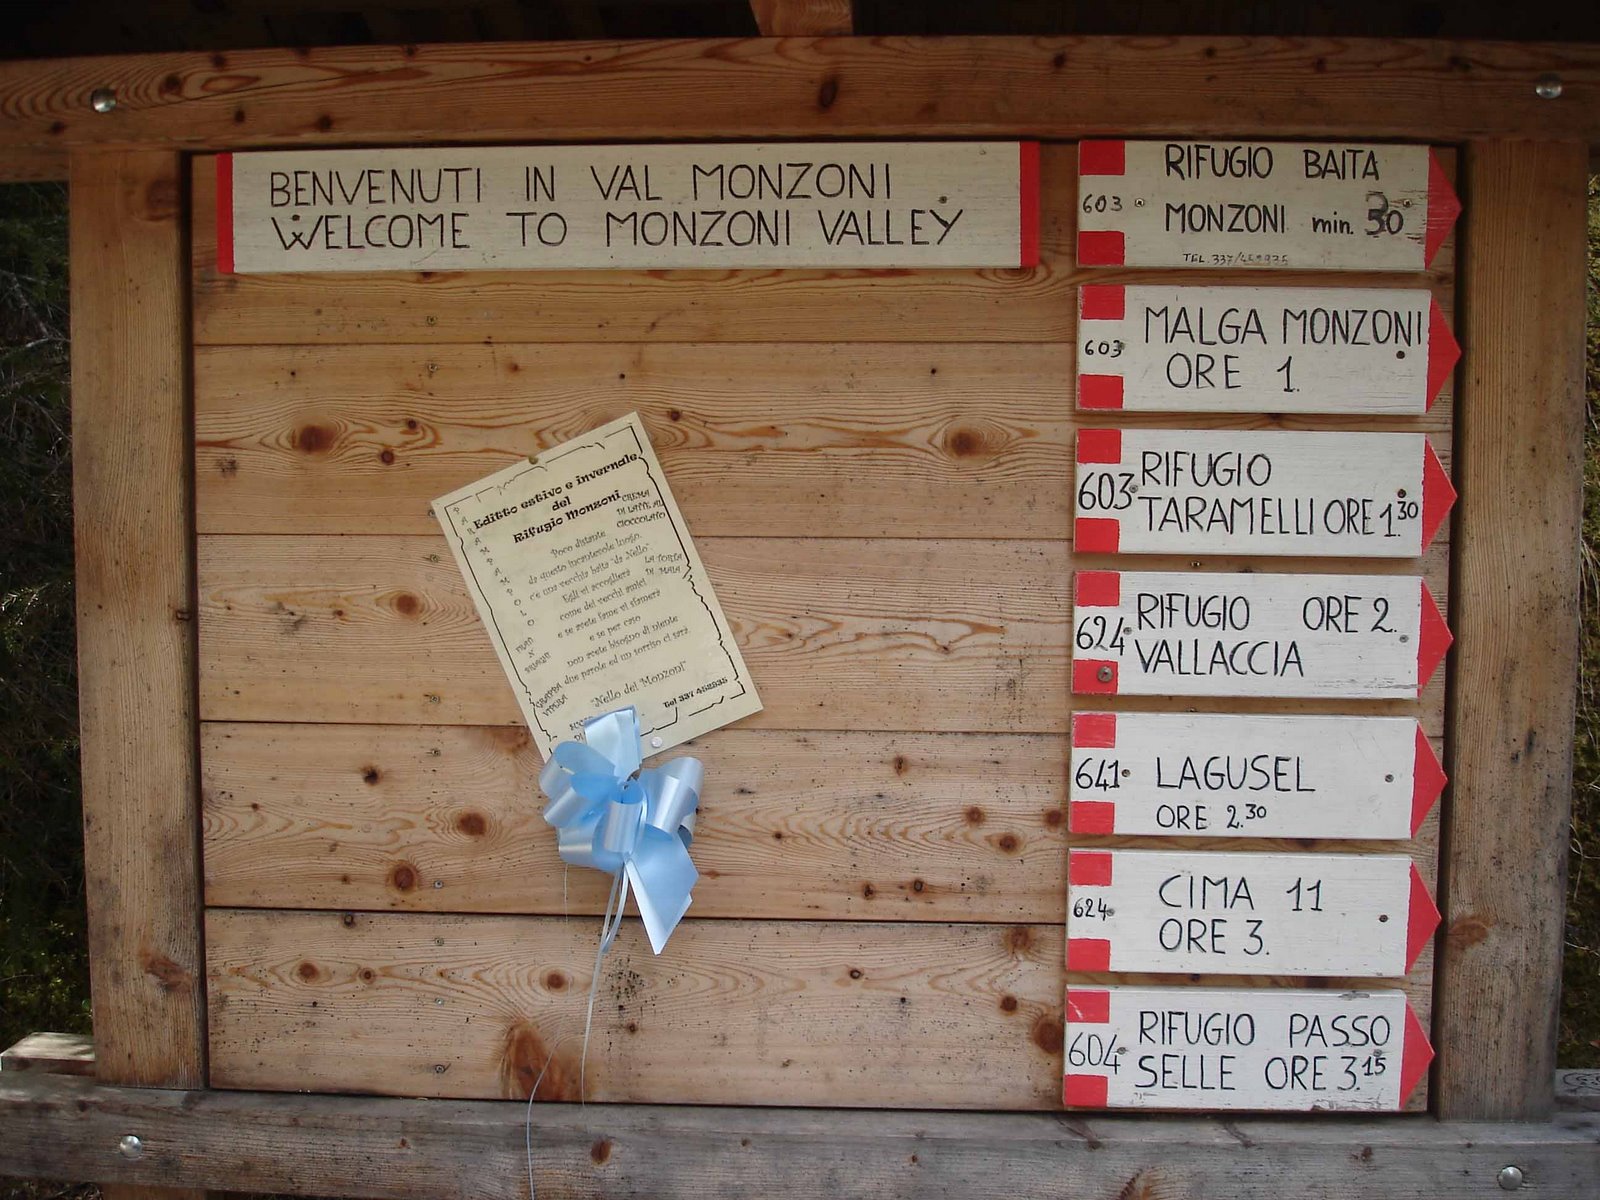 BENVENUTI IN VAL MONZONI
WELCOME TO MONZONI VALLEY
603
RIFUGIO BAITA
MONZONI min. 30
TEL. 337/452935
603
MALGA MONZONI
ORE 1.
603
RIFUGIO
TARAMELLI ORE 1.30
624
RIFUGIO ORE 2.
VALLACCIA
641
LAGUSEL
ORE 2.30
624
CIMA 11
ORE 3.
604
RIFUGIO PASSO
SELLE ORE 3.15
Editto estivo e invernale
del
Rifugio Monzoni
Poco distante
da questo incantevole luogo,
c'è una vecchia baita "da Nello"
Egli vi accoglierà
come dei vecchi amici
e se avete fame vi sfamerà
e se per caso
non avete bisogno di niente
due parole ed un sorriso ci sarà.
"Nello dei Monzoni"
Tel 337 452935
PARAMPAMPOLO
CREMA
DI LATTE AL
CIOCCOLATO
LA TORTA
DI MAIA
GRAPPA
VIPERA